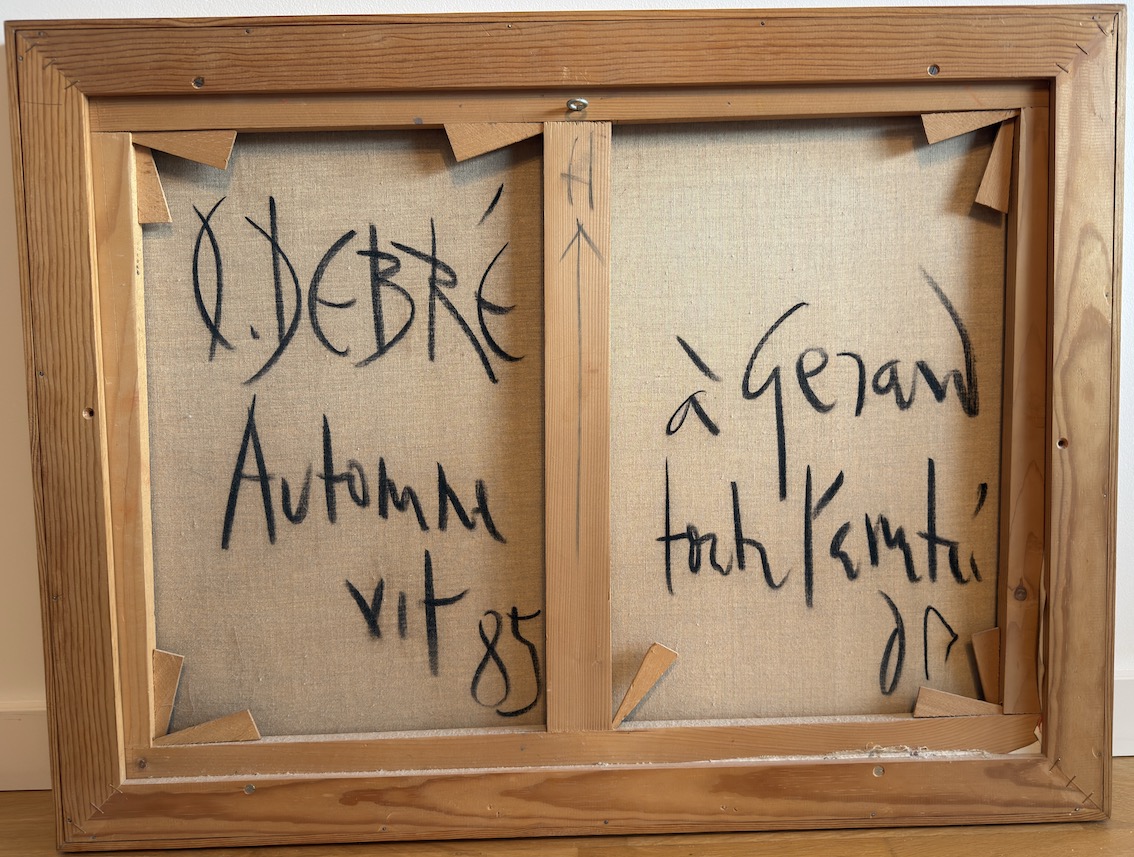 O. DEBRÉ
Automne
vit
85
H
à Gerard
toute l'amitié